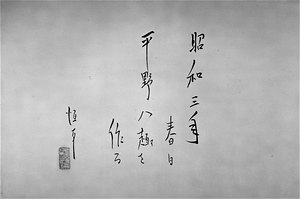 昭和三年
春日
平野八趣を
作る
恒平